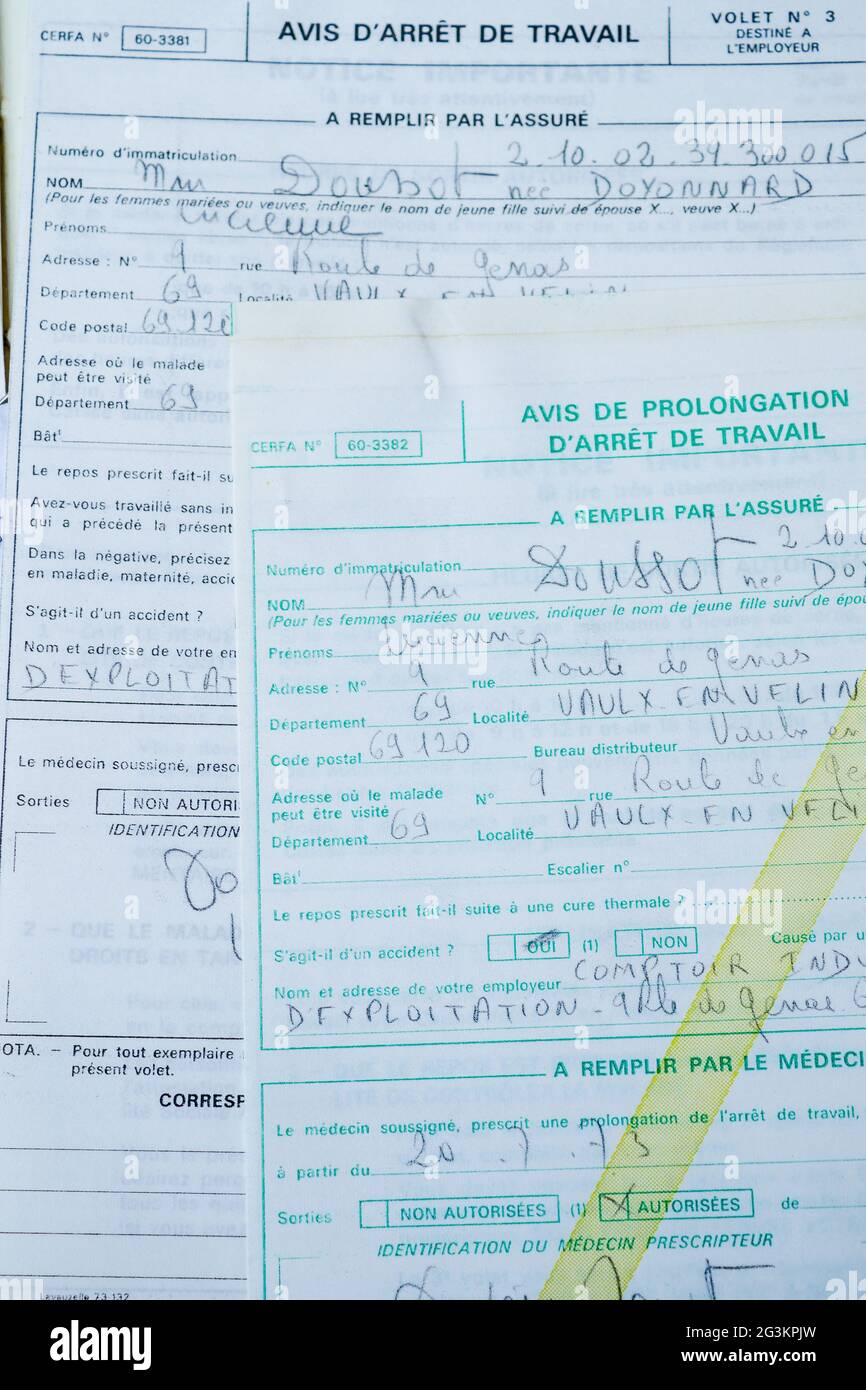 CERFA N° 60-3381
AVIS D'ARRÊT DE TRAVAIL
VOLET N° 3
DESTINÉ A
L'EMPLOYEUR
A REMPLIR PAR L'ASSURÉ
Numéro d'immatriculation 2.10.02.34.300015
NOM Mme Doussot née DOYONNARD
(Pour les femmes mariées ou veuves, indiquer le nom de jeune fille suivi de épouse X..., veuve X...)
Prénoms Lucienne
Adresse : N° 9 rue Route de genas
Département 69 Localité VAULX EN VELIN
Code postal 69120
Adresse où le malade
peut être visité
Département 69
Bât'
Le repos prescrit fait-il su
Avez-vous travaillé sans in
qui a précédé la présent
Dans la négative, précisez
en maladie, maternité, accid
S'agit-il d'un accident ?
Nom et adresse de votre em
D'EXPLOITAT
Le médecin soussigné, presc
Sorties NON AUTORI
IDENTIFICATION
OTA. — Pour tout exemplaire
présent volet.
CORRESP
Lavauzelle 73-132
CERFA N° 60-3382
AVIS DE PROLONGATION
D'ARRÊT DE TRAVAIL
A REMPLIR PAR L'ASSURÉ
Numéro d'immatriculation 2.10.0
NOM Mme DOUSSOT née DOY
(Pour les femmes mariées ou veuves, indiquer le nom de jeune fille suivi de épou
Prénoms Lucienne
Adresse : N° 9 rue Route de genas
Département 69 Localité VAULX EN VELIN
Code postal 69120 Bureau distributeur Vaulx en
Adresse où le malade
peut être visité N° 9 rue Route de ge
Département 69 Localité VAULX EN VELI
Bât' Escalier n°
Le repos prescrit fait-il suite à une cure thermale ?
S'agit-il d'un accident ? OUI (1) NON Causé par u
Nom et adresse de votre employeur COMPTOIR INDU
D'EXPLOITATION - 9 Rte de genas
A REMPLIR PAR LE MÉDECI
Le médecin soussigné, prescrit une prolongation de l'arrêt de travail,
à partir du 20.7.73
Sorties NON AUTORISÉES (1) X AUTORISÉES de
IDENTIFICATION DU MÉDECIN PRESCRIPTEUR
alamy
Image ID: 2G3KPJW
www.alamy.com